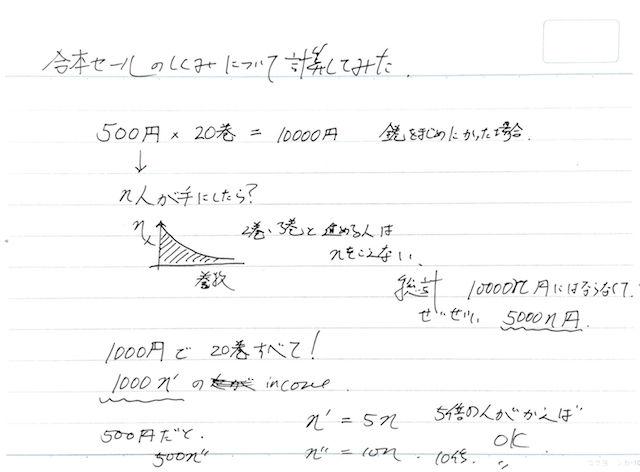 合本セールのしくみについて計算してみた。
500円 × 20巻 = 10000円
をまじめにかった場合.
↓
n人が手にしたら?
n
巻数
2巻、3巻と進める人は
nをこえない。
総計 10000n円にはならなくて、
せいぜい 5000n円.
1000円で 20巻すべて!
1000n' の income.
500円だと.
500n"
n' = 5n
n" = 10n.
5倍の人がかえば
OK
10倍. 〃